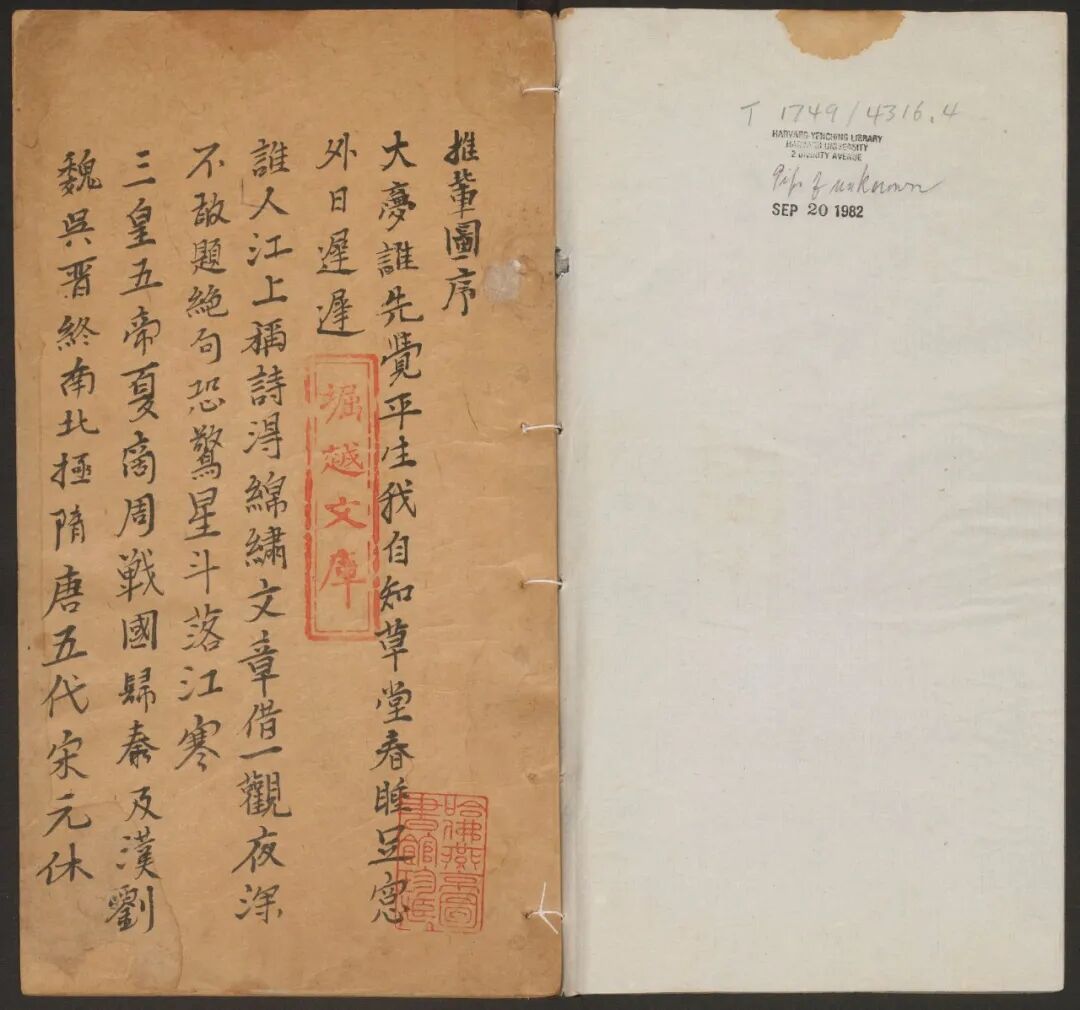 推軰圖序
大夢誰先覺平生我自知草堂春睡足窓
外日遲遲
誰人江上稱詩得綿繡文章借一觀夜深
不敢題絶句恐驚星斗落江寒
三皇五帝夏商周戰國歸秦及漢劉
魏吳晋終南北極隋唐五代宋元休
堀越文庫
哈佛燕京圖
書館珍藏
T 1749/4316.4
HARVARD-YENCHING LIBRARY
HARVARD UNIVERSITY
2 DIVINITY AVENUE
Gift of unknown
SEP 20 1982